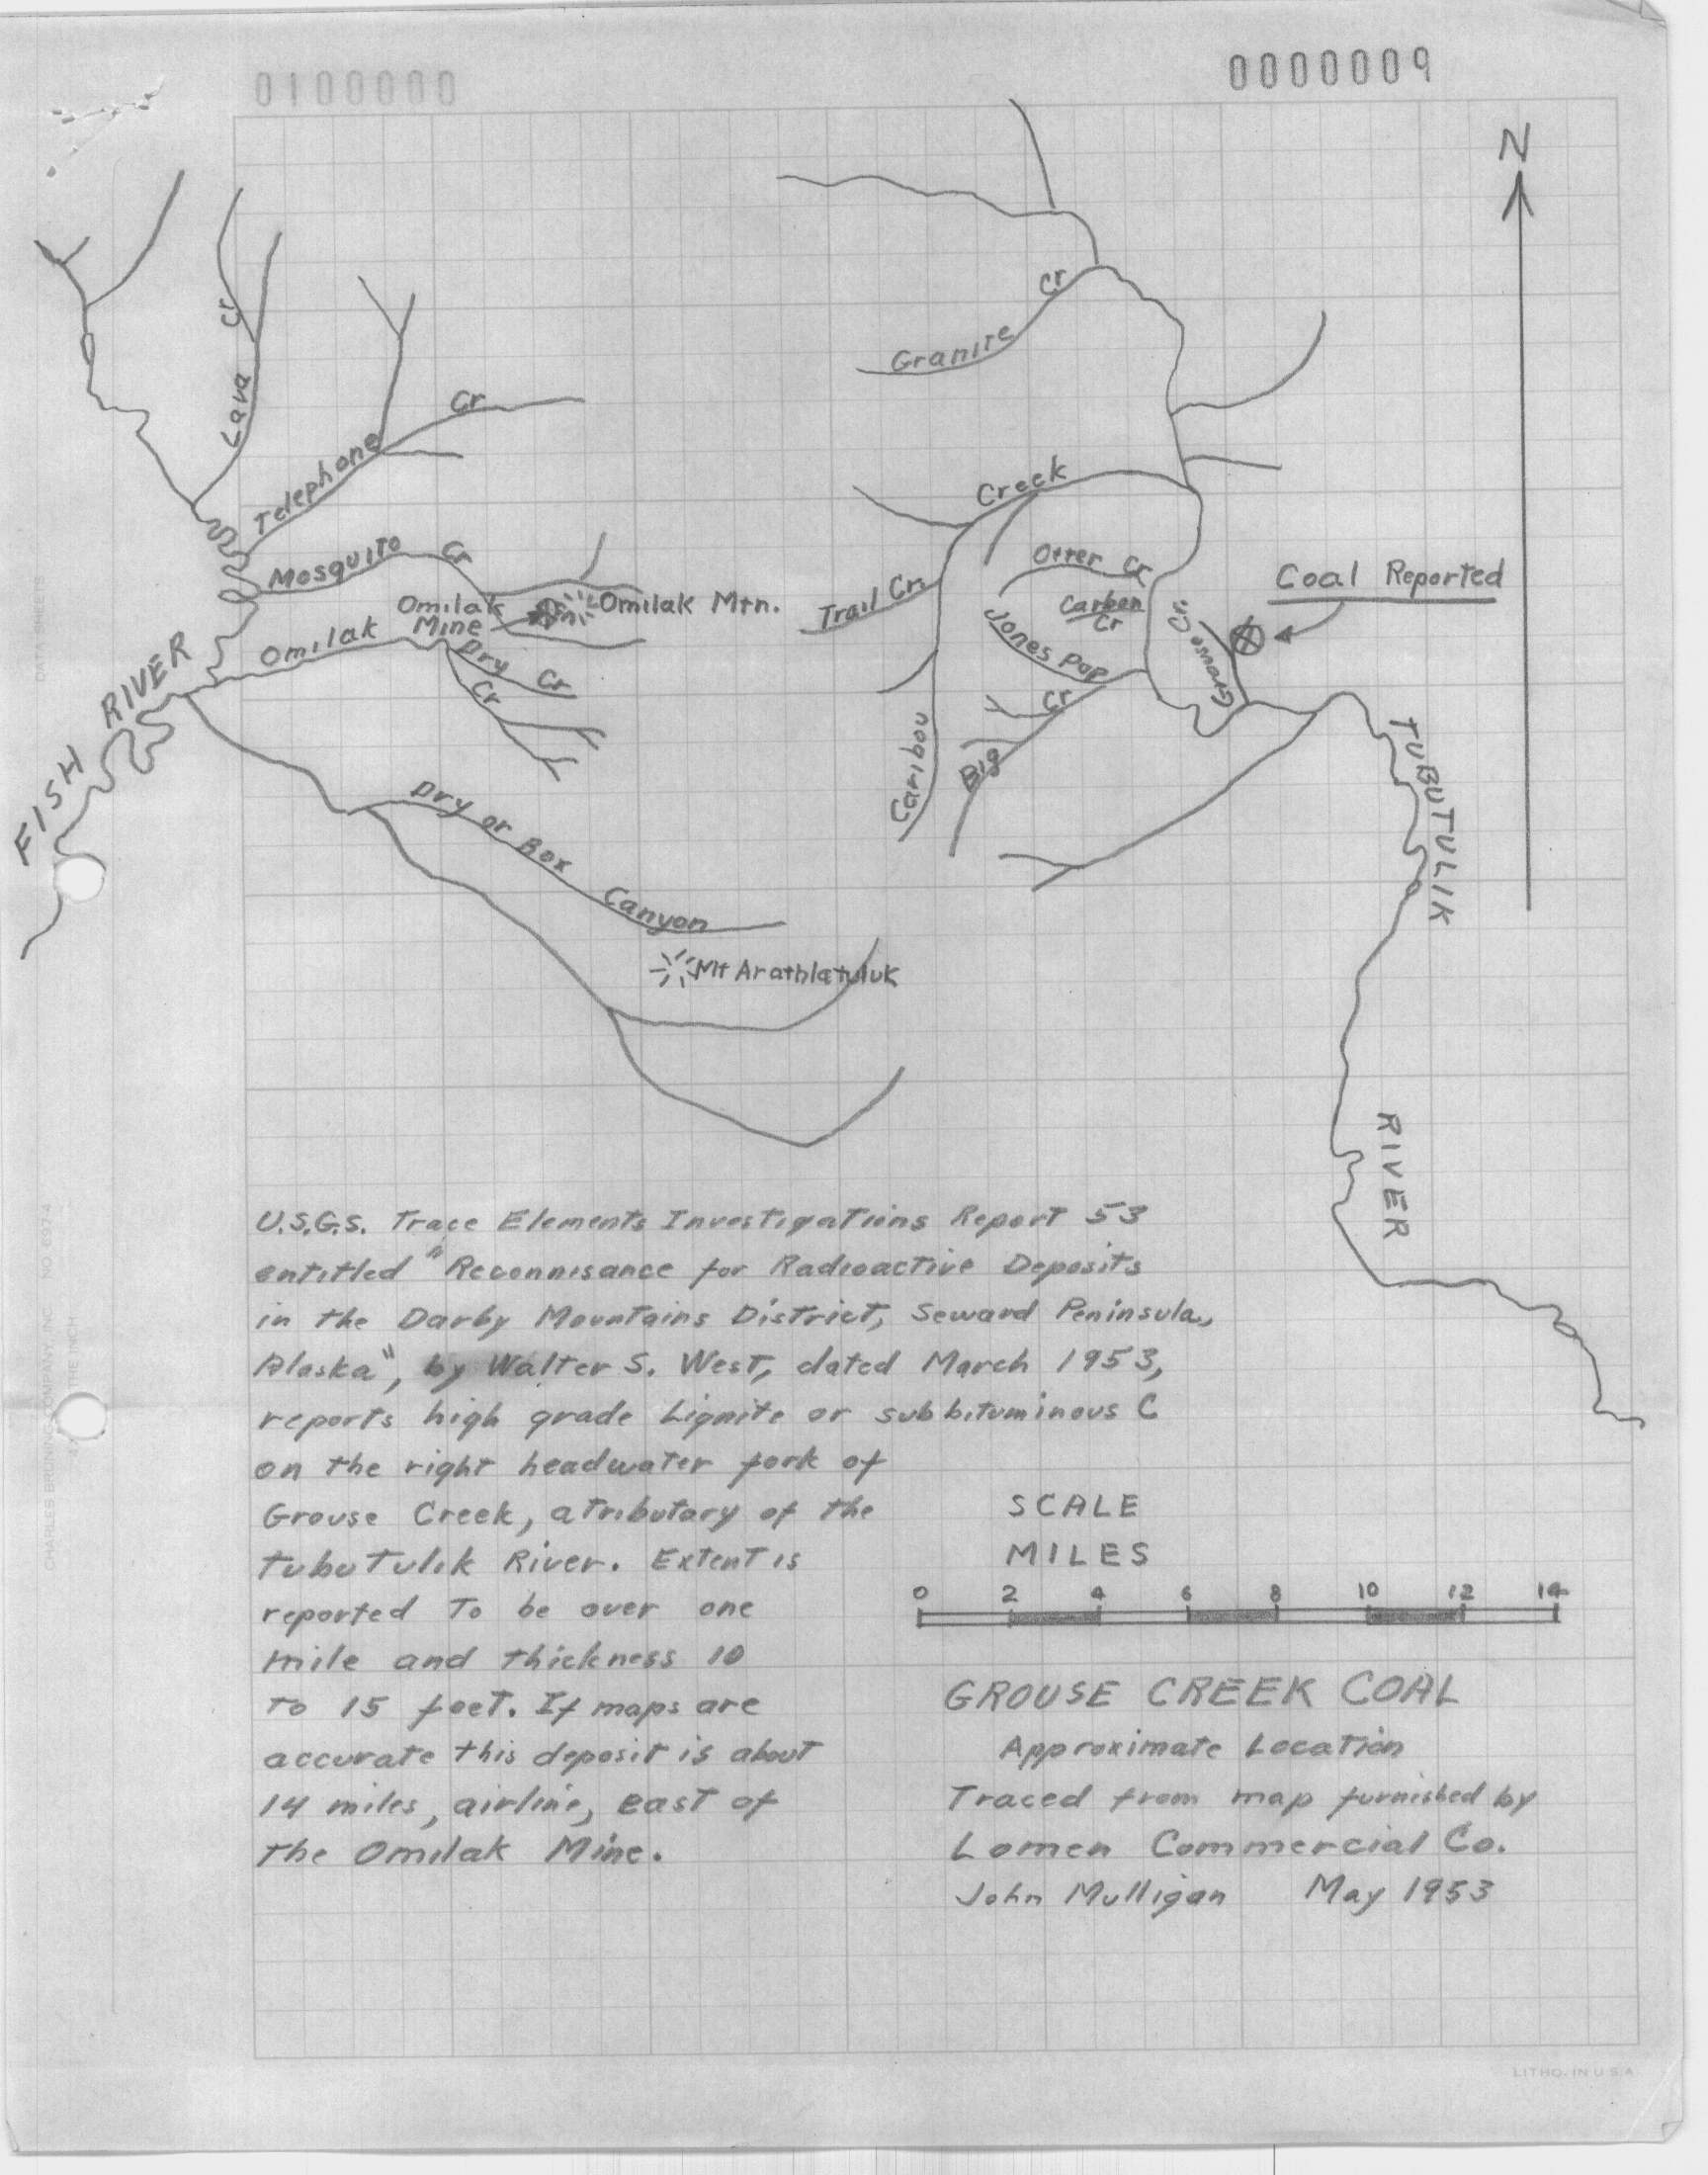 0100000
0000009
N
Cr
Lava
Cr
Granite
Cr
Telephone
Creek
Mosquito Cr
Otter Cr
Coal Reported
Trail Cr.
Carbon
Cr
Grouse Cr.
Omilak
Mine
Omilak Mtn.
Jones Pup
Omilak
Dry Cr
Cr
Cr
Big
Caribou
FISH RIVER
TUBUTULIK
RIVER
Dry or Box Canyon
Mt Arathlatuluk
U.S.G.S. Trace Elements Investigations Report 53
entitled "Reconnisance for Radioactive Deposits
in the Darby Mountains District, Seward Peninsula,
Alaska", by Walter S. West, dated March 1953,
reports high grade Lignite or subbituminous C
on the right headwater fork of
Grouse Creek, a tributary of the
Tubutulik River. Extent is
reported To be over one
mile and thickness 10
to 15 feet. If maps are
accurate this deposit is about
14 miles, airline, east of
the Omilak Mine.
SCALE
MILES
0 2 4 6 8 10 12 14
GROUSE CREEK COAL
Approximate Location
Traced from map furnished by
Lomen Commercial Co.
John Mulligan May 1953
DATA SHEETS
LITHO. IN U.S.A.